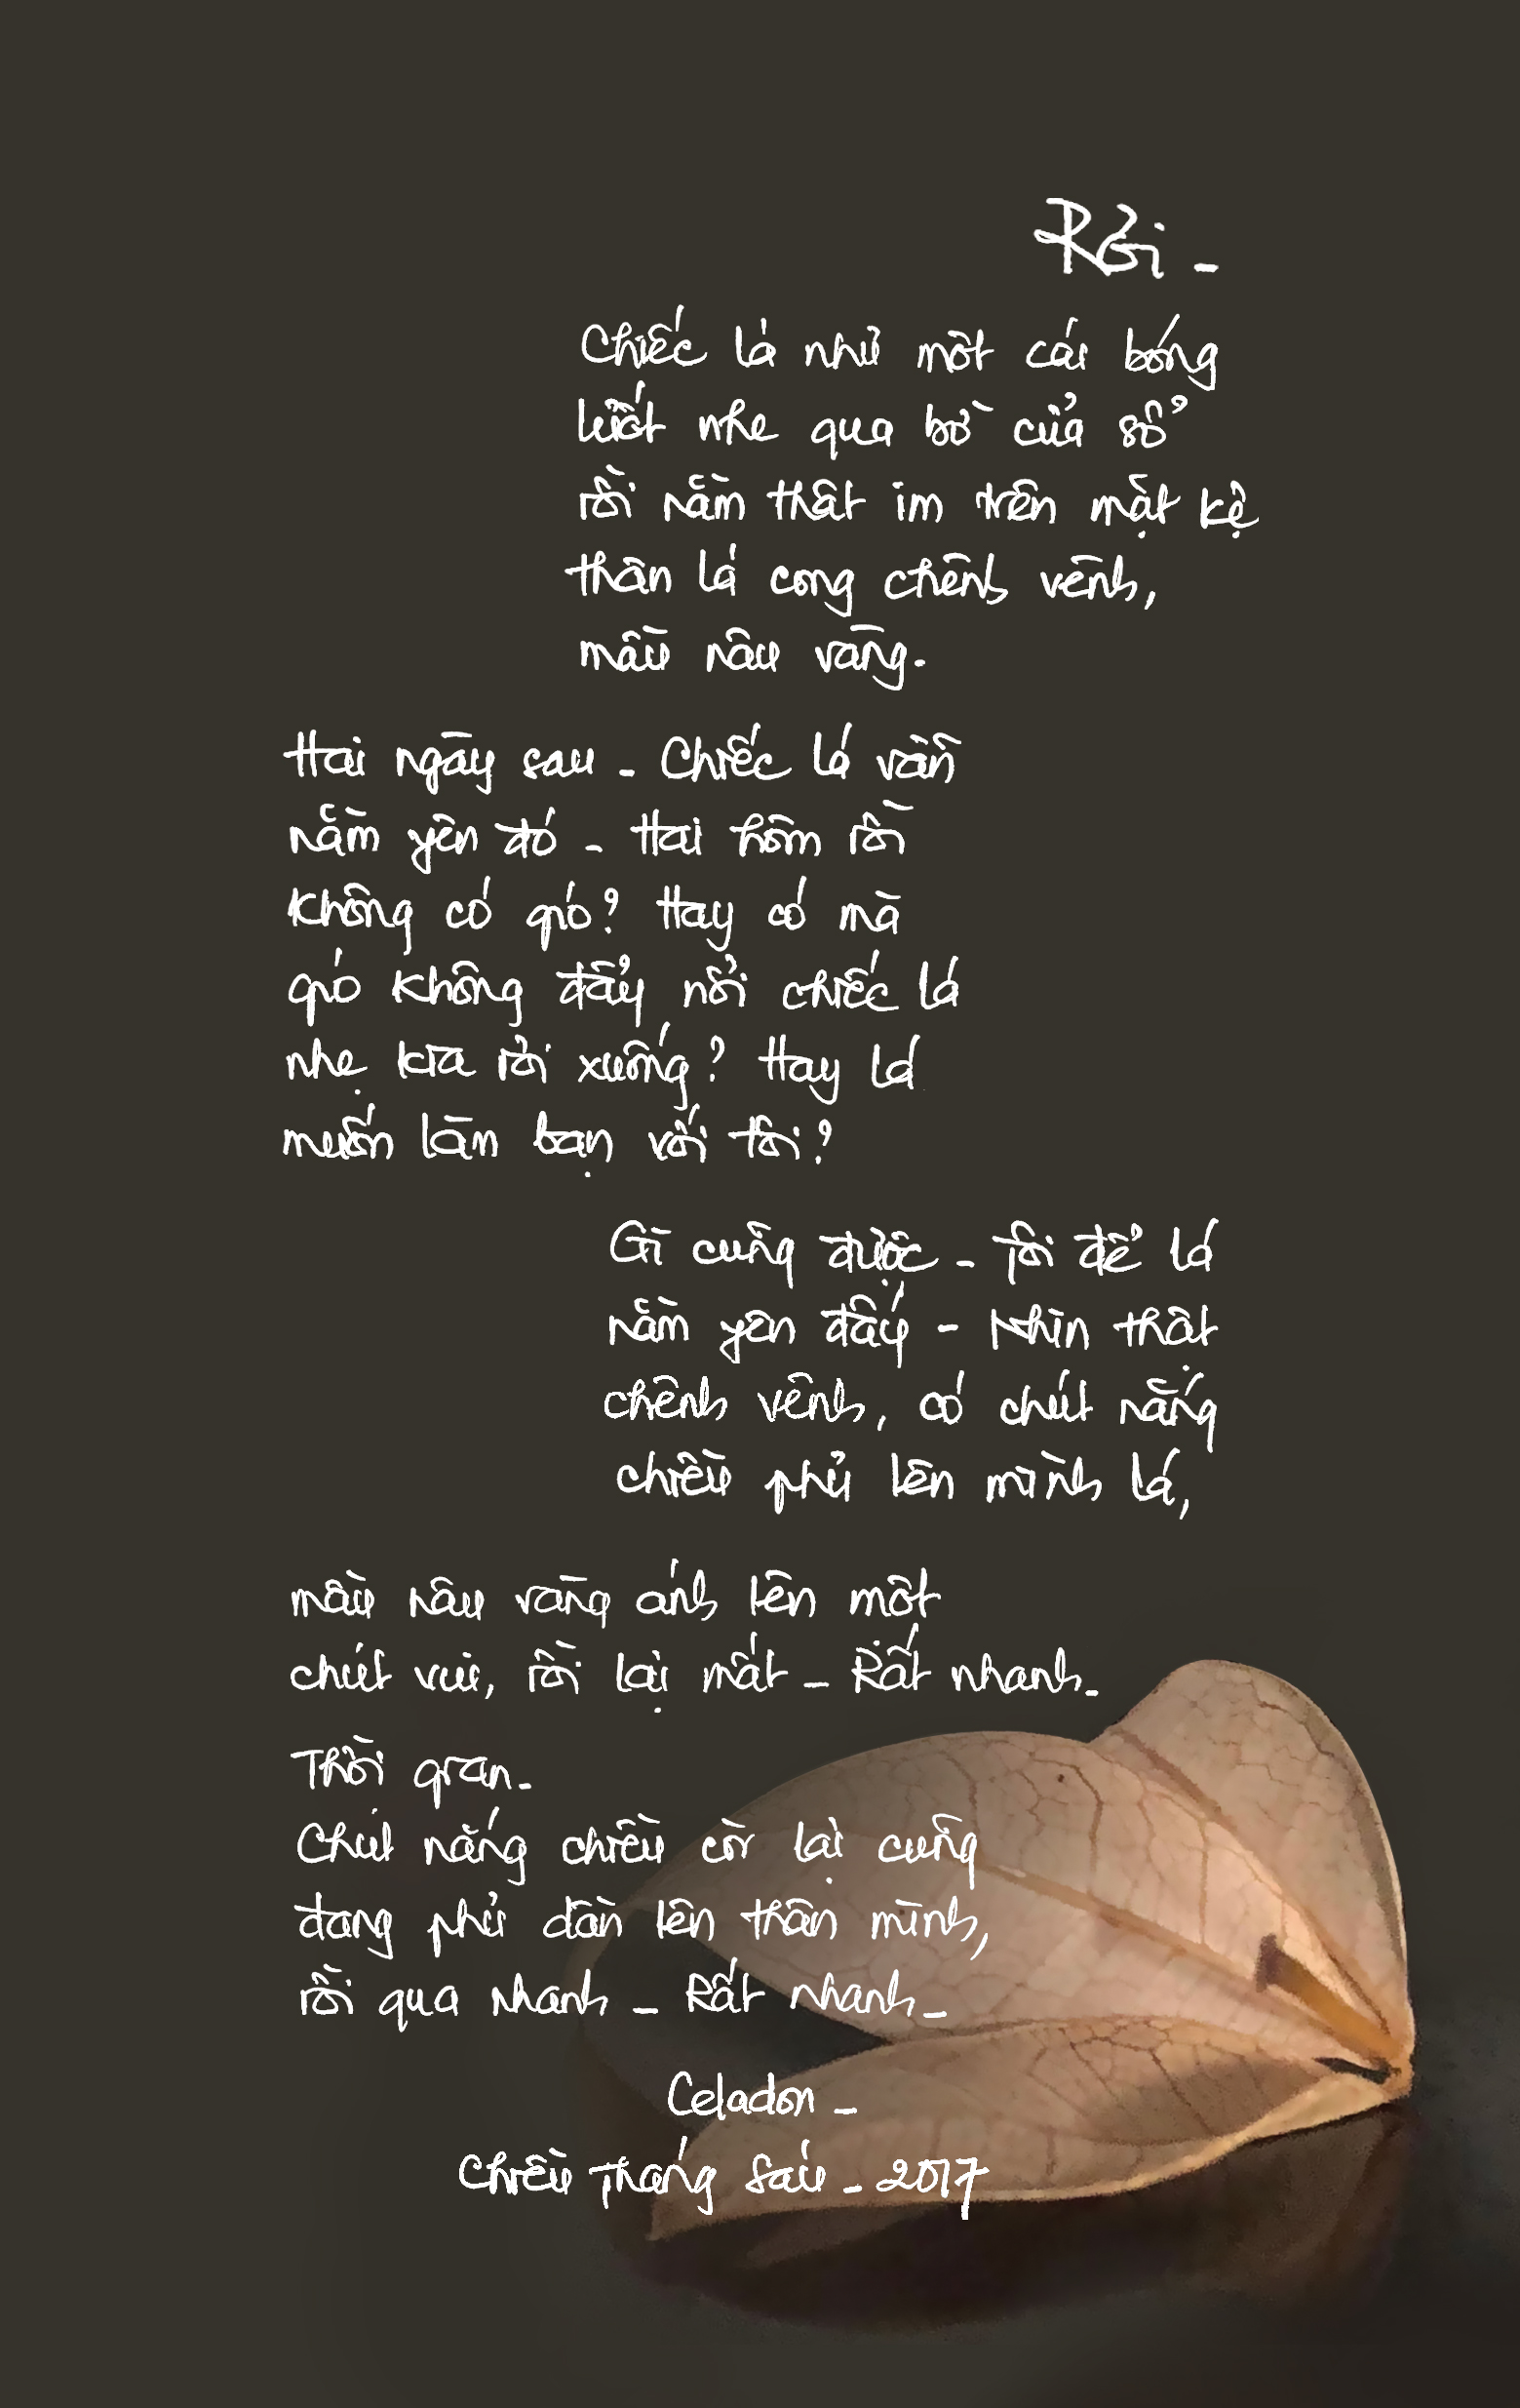 Rơi -
Chiếc lá như một cái bóng
lướt nhẹ qua bờ cửa sổ
rồi nằm thật im trên mặt kệ
thân lá cong chênh vênh,
mầu nâu vàng.
Hai ngày sau - Chiếc lá vẫn
nằm yên đó - Hai hôm rồi
không có gió? Hay có mà
gió không đẩy nổi chiếc lá
nhẹ kia rơi xuống? Hay lá
muốn làm bạn với tôi?
Gì cũng được - Tôi để lá
nằm yên đấy - Nhìn thật
chênh vênh, có chút nắng
chiều phủ lên mình lá,
mầu nâu vàng ánh lên một
chút vui, rồi lại mất - Rất nhanh -
Thời gian -
Chút nắng chiều còn lại cũng
đang phủ dần lên thân mình,
rồi qua nhanh - Rất nhanh -
Celadon -
Chiều Tháng Sáu - 2017